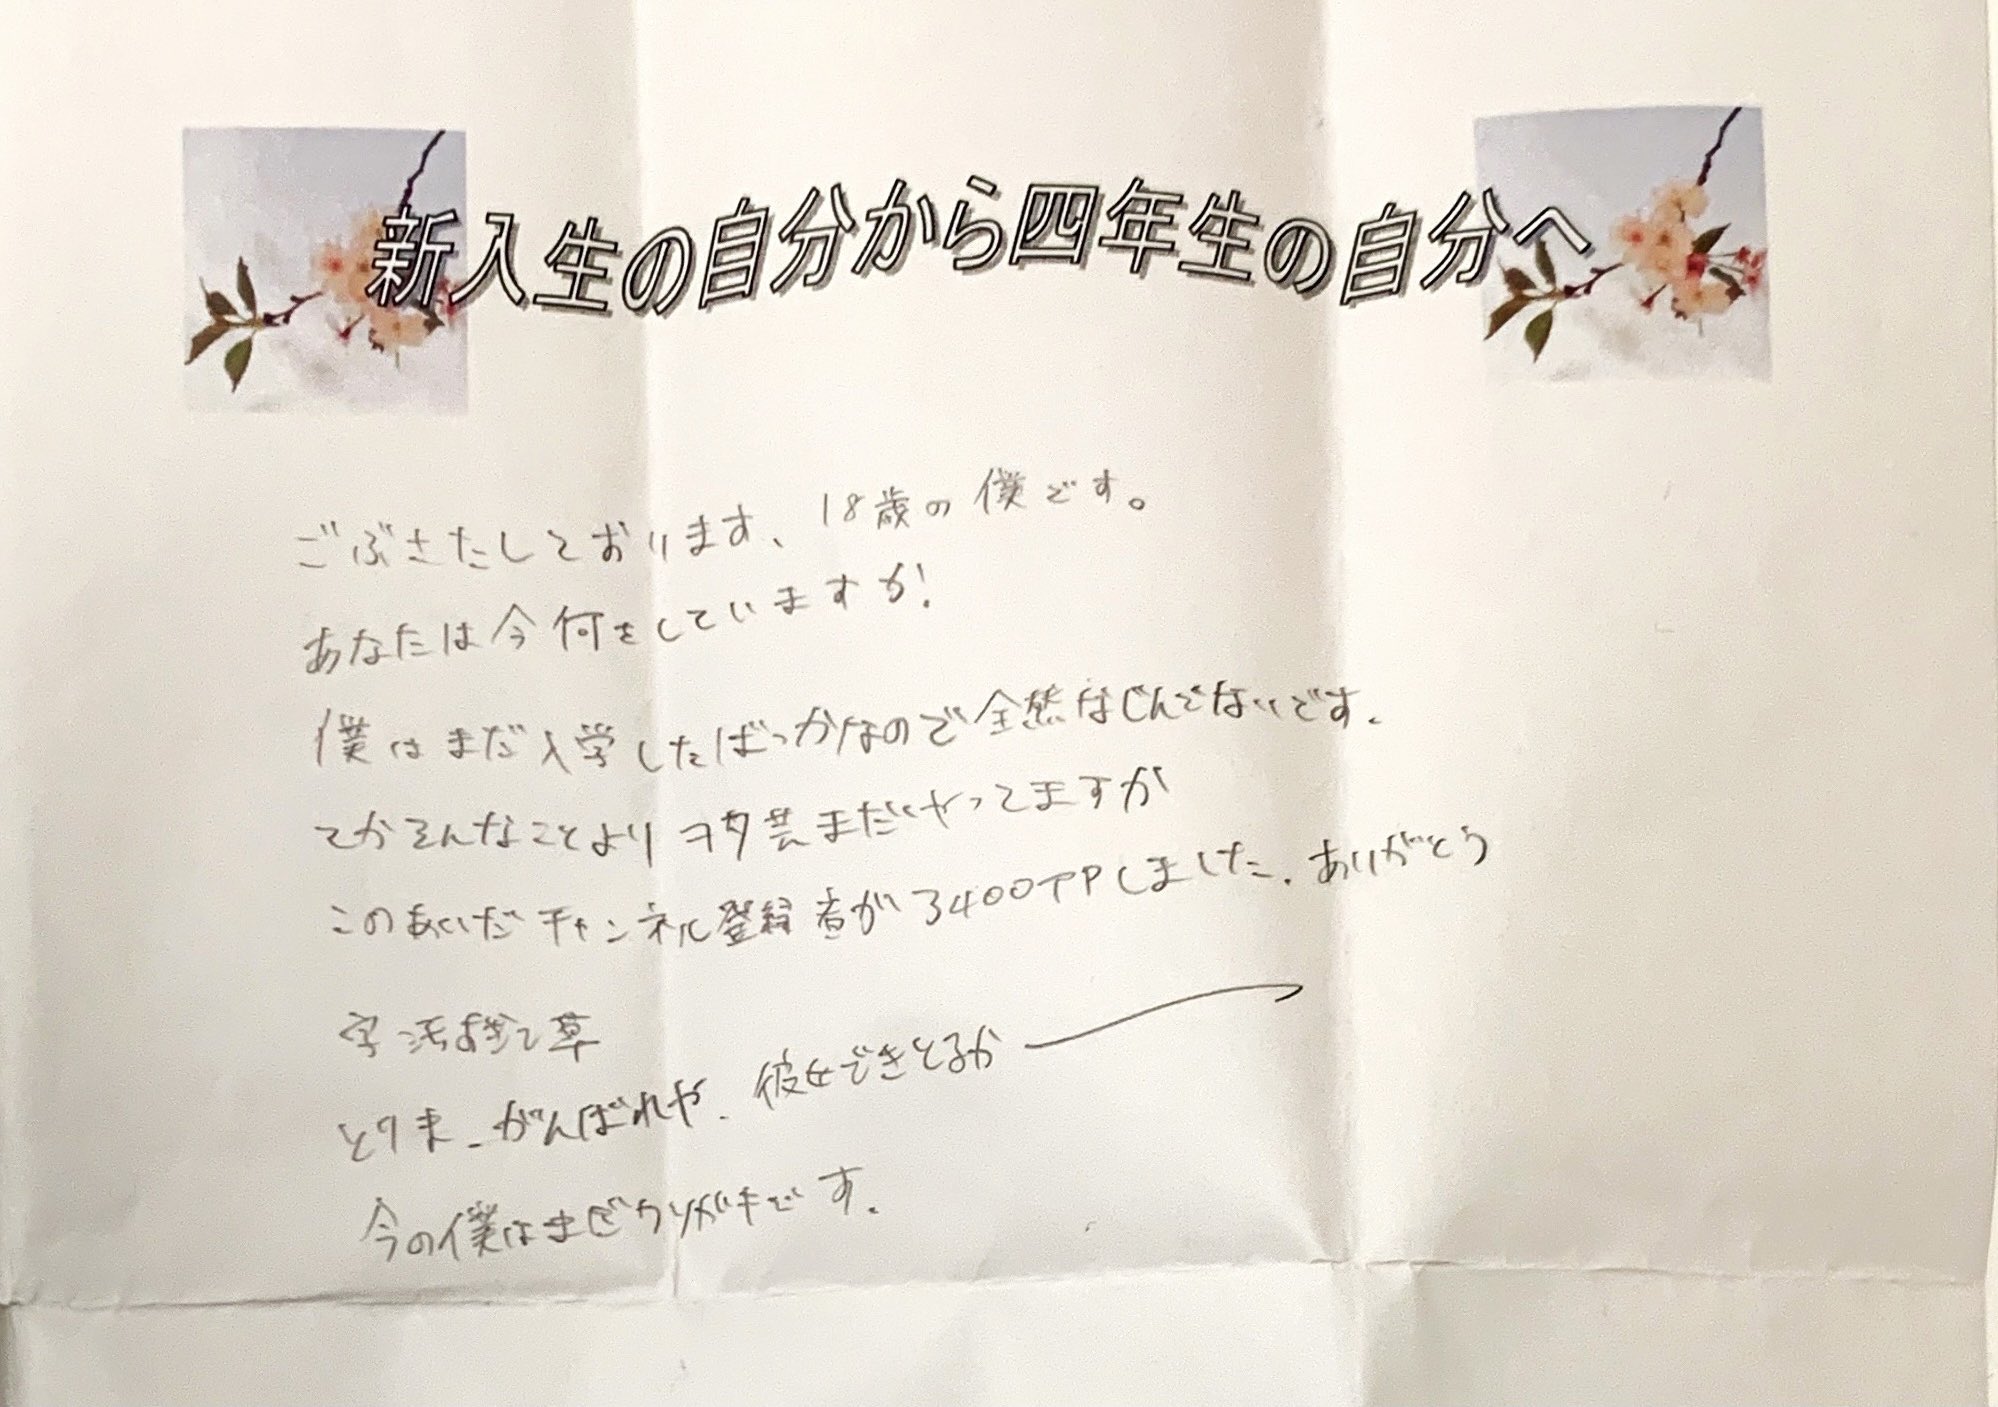 新入生の自分から四年生の自分へ
ごぶさたしております、18歳の僕です。
あなたは今何をしていますか!
僕はまだ入学したばっかなので全然なじんでないです.
てかそんなことよりヲタ芸まだやってますか
このあいだチャンネル登録者が3400TPしました. ありがとう
字汚すぎて草
とりま、がんばれや. 彼女できとるか
今の僕はまだ
です.